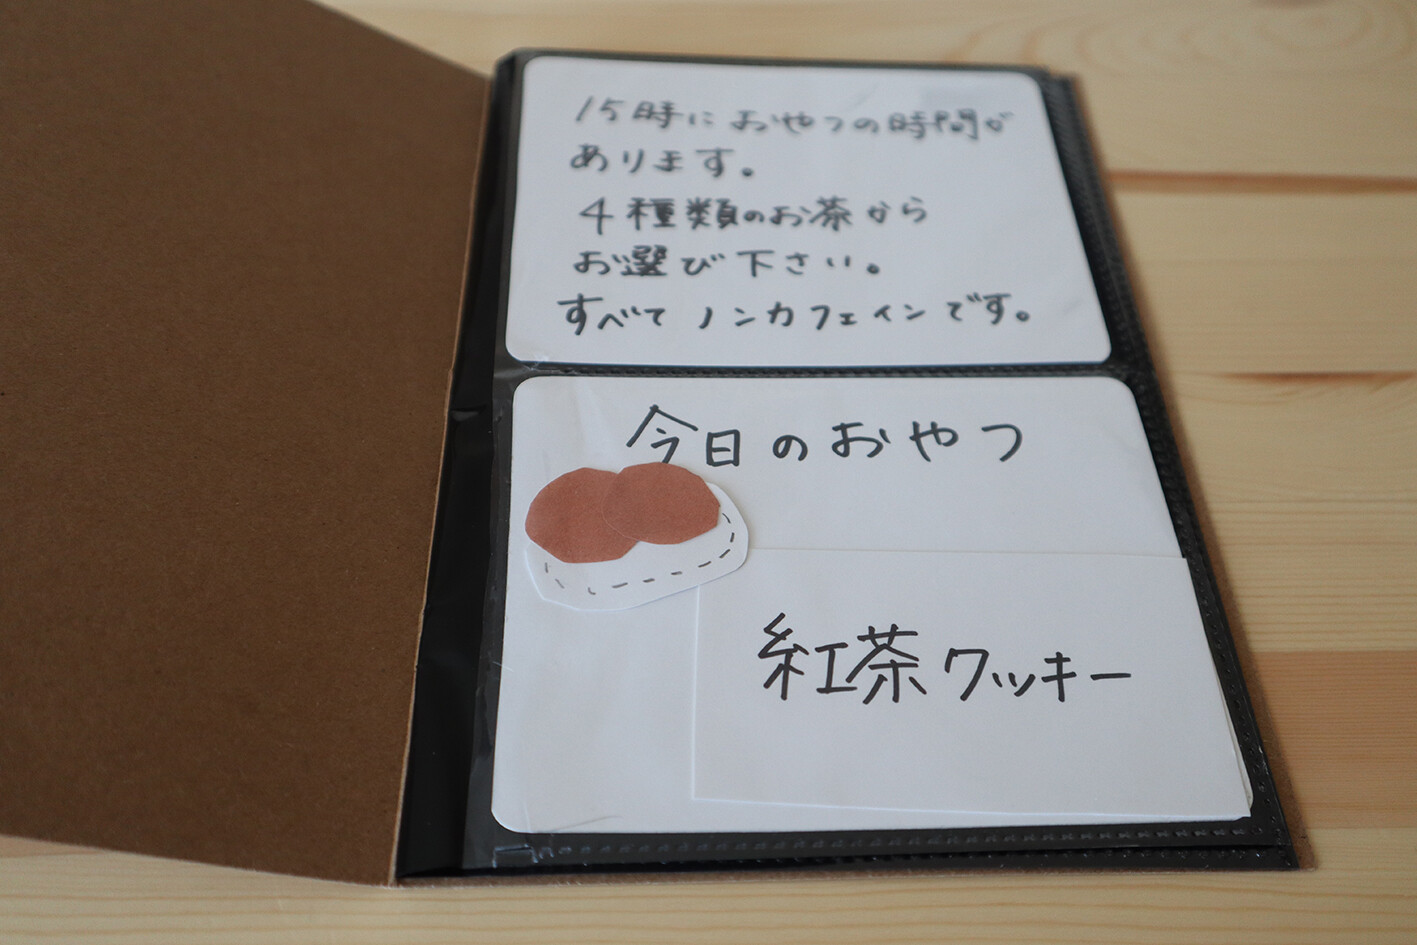 15時におやつの時間が
あります。
4種類のお茶から
お選び下さい。
すべてノンカフェインです。
今日のおやつ
紅茶クッキー